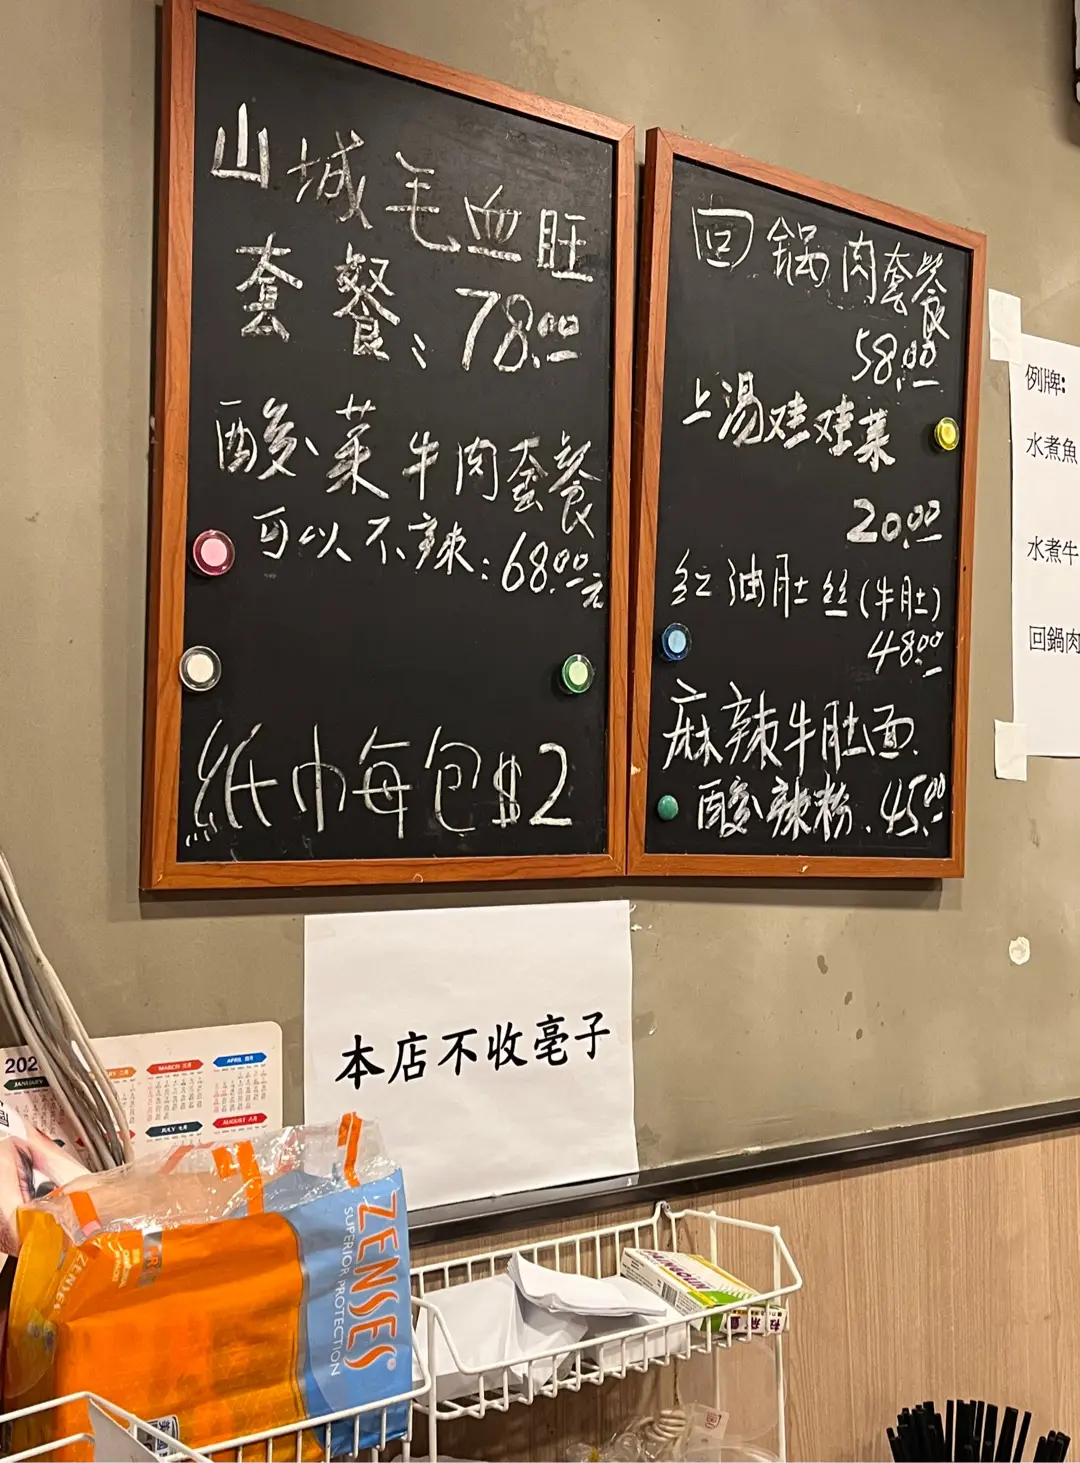 山城毛血旺
套餐：78.00
酸菜牛肉套餐
可以不辣：68.00元
紙巾每包$2
回鍋肉套餐
58.00
上湯娃娃菜
20.00
红油肚丝(牛肚)
48.00
麻辣牛肚面.
酸辣粉.45.00
例牌:
水煮魚
水煮牛
回鍋肉
本店不收毫子
202
JANUARY
MARCH 三月
APRIL 四月
JULY 七月
AUGUST 八月
ZENSES
SUPERIOR PROTECTION